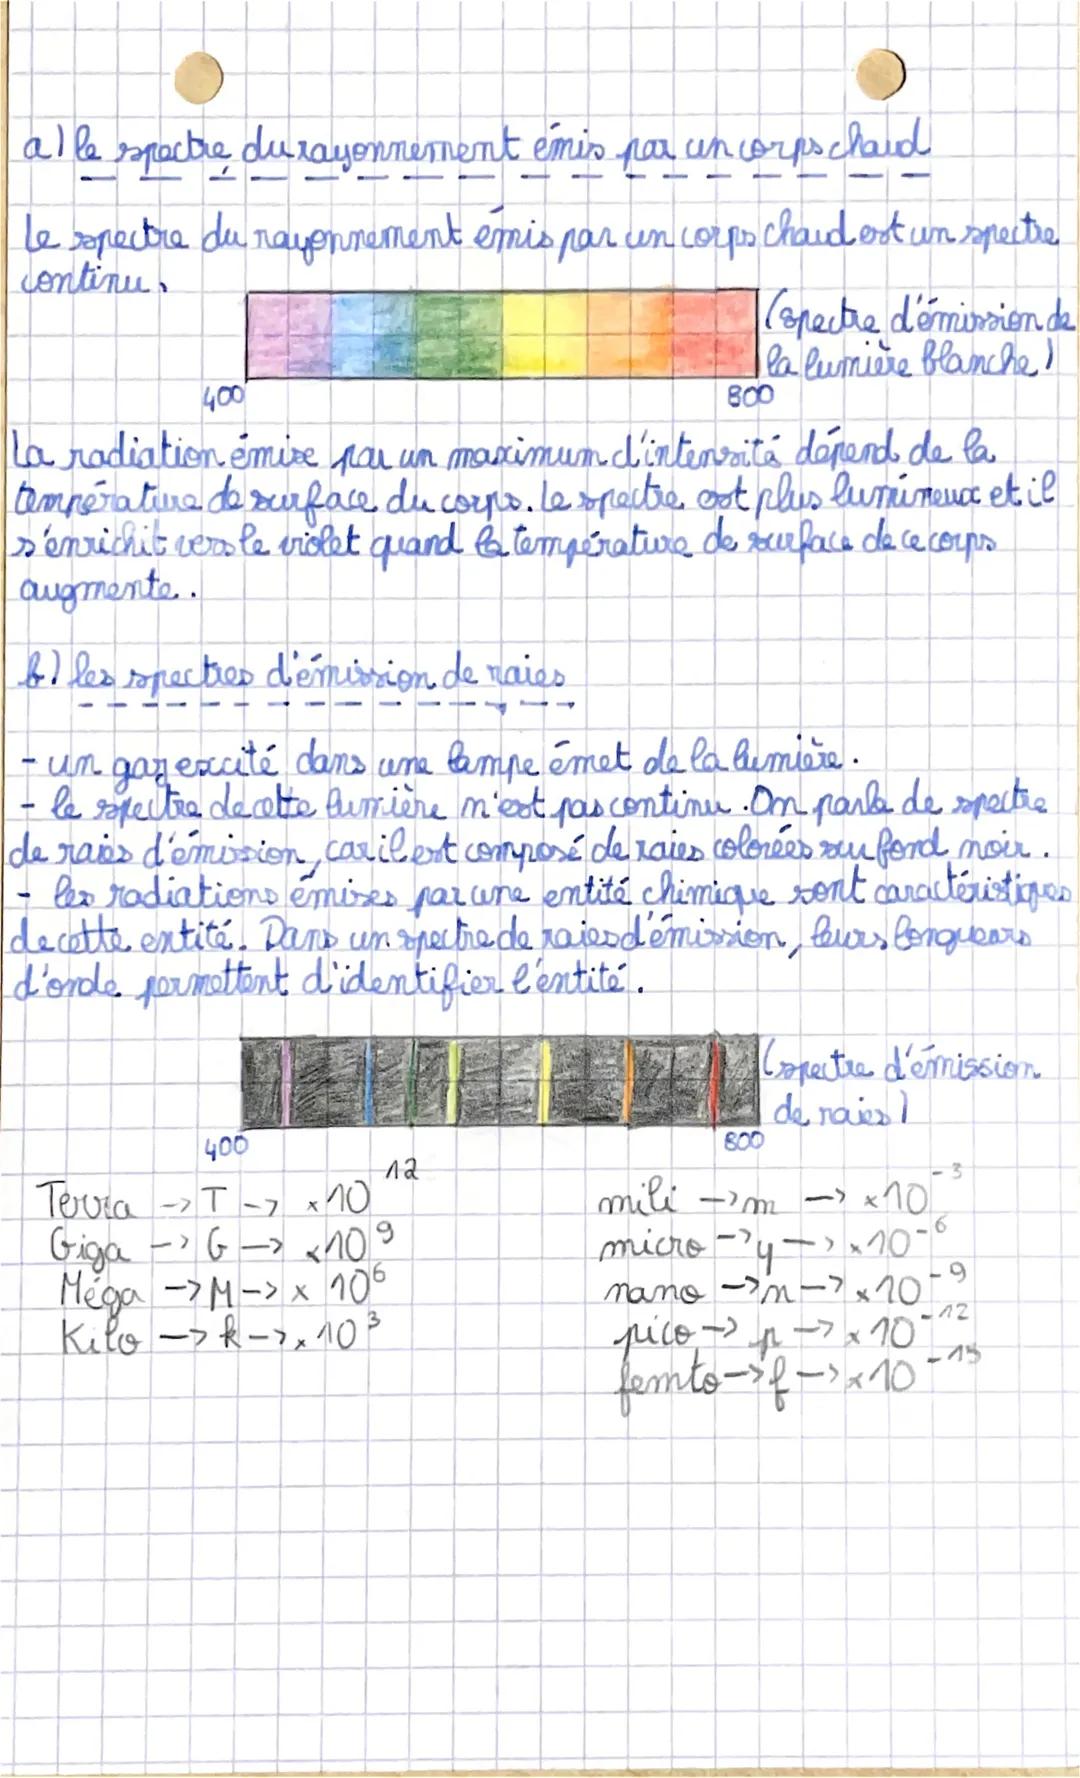 a) le spectre du rayonnement émis par un corps chaud
Le spectre du rayonnement émis par un corps chaud est un spectre
continu.
(spectre d'émission de
la lumière blanche)
400
800
La radiation émise par un maximum d'intensité dépend de la
température de surface du corps. Le spectre est plus lumineux et il
s'enrichit vers le violet quand la température de surface de ce corps
augmente.
b) les spectres d'émission de raies
- un gaz excité dans une lampe émet de la lumière.
- le spectre de cette lumière n'est pas continu. On parle de spectre
de raies d'émission, car il est composé de raies colorées sur fond noir.
- les radiations émises par une entité chimique sont caractéristiques
de cette entité. Dans un spectre de raies d'émission, leurs longueurs
d'onde permettent d'identifier l'entité.
(spectre d'émission
de raies)
400
800
Terra -> T -> x10¹²
Giga -> G -> x10⁹
Méga -> M -> x 10⁶
Kilo -> k -> x 10³
mili -> m -> x10⁻³
micro -> y -> x10⁻⁶
nano -> n -> x10⁻⁹
pico -> p -> x10⁻¹²
femto -> f -> x10⁻¹⁵